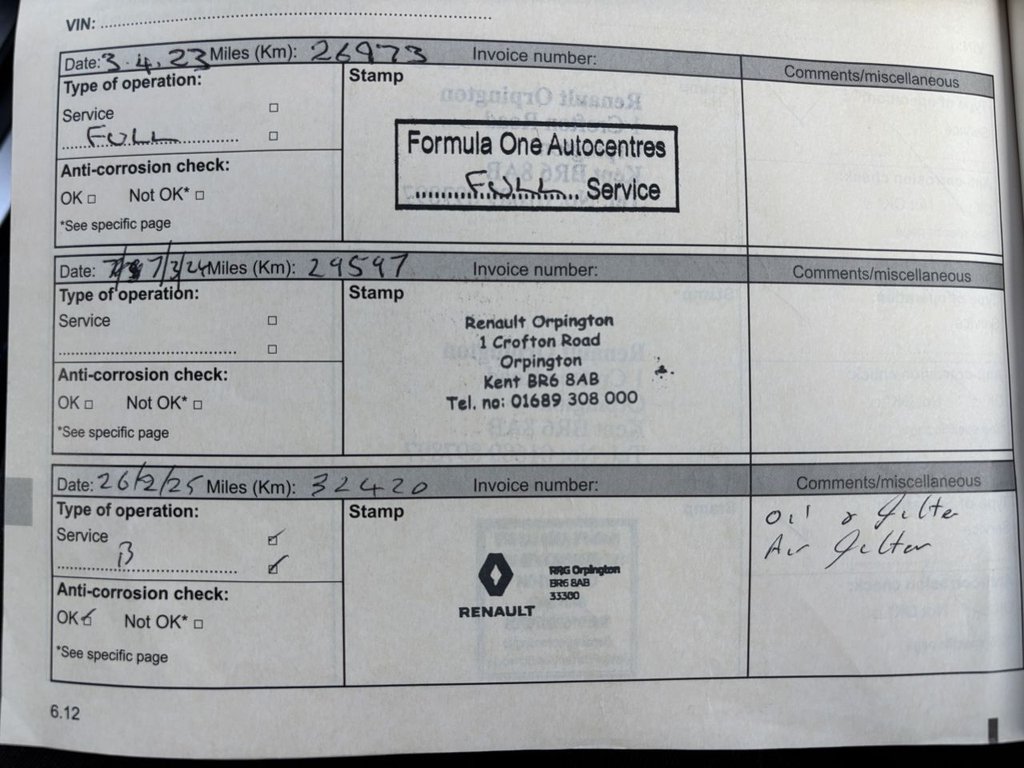 VIN:
Date: 3.4.23 Miles (Km): 26973 Invoice number:
Comments/miscellaneous
Type of operation:
Stamp
Service
FULL
Formula One Autocentres
FULL Service
Anti-corrosion check:
OK Not OK*
*See specific page
Date: 7/3/24 Miles (Km): 29597 Invoice number:
Comments/miscellaneous
Type of operation:
Stamp
Service
Renault Orpington
1 Crofton Road
Orpington
Kent BR6 8AB
Tel. no: 01689 308 000
Anti-corrosion check:
OK Not OK*
*See specific page
Date: 26/2/25 Miles (Km): 32420 Invoice number:
Comments/miscellaneous
Type of operation:
Stamp
Service
B
Oil & filter
Air filter
RENAULT
RRG Orpington
BR6 8AB
33300
Anti-corrosion check:
OK Not OK*
*See specific page
6.12